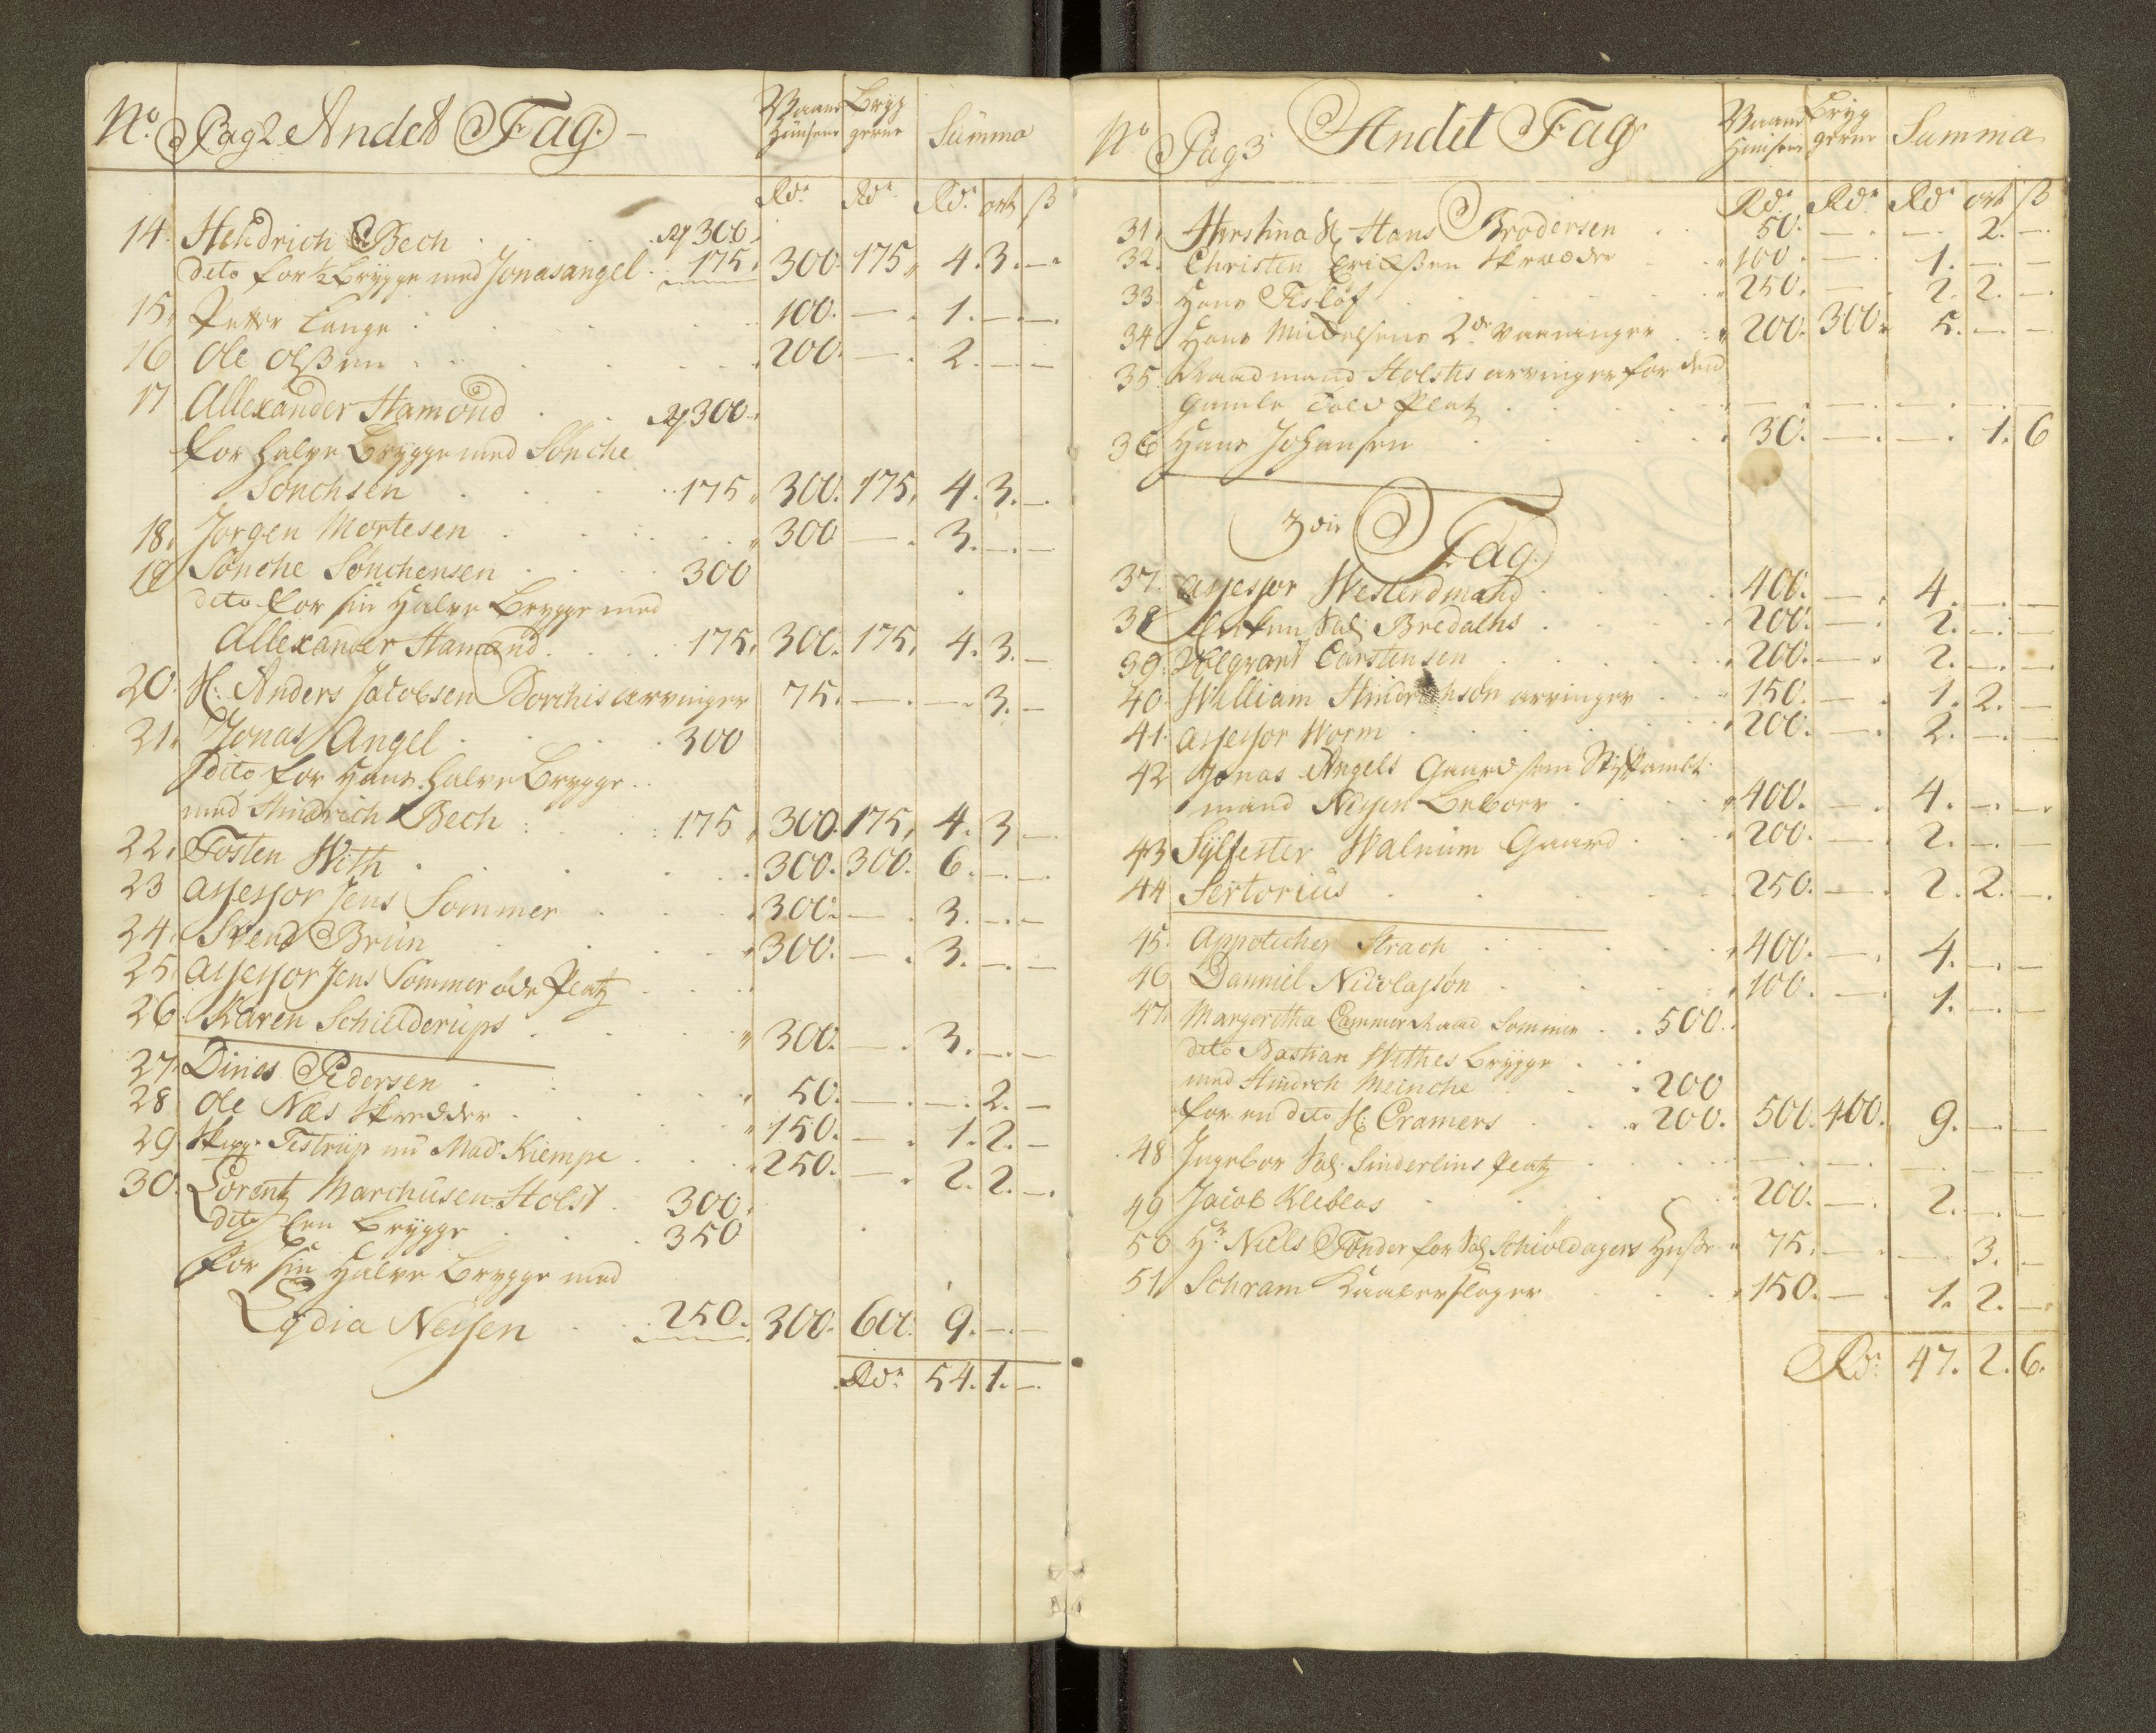 No. Pag 2 Andet Fag. Vaane Huusene Bryg gerne Summa
Rdr. Rdr. Rdr. ort ß
14. Hendrich Bech . . . Rf 300.
dito for ½ Brygge med Jonasangel . 175. 300. 175. 4. 3. —
15. Petter Lange . . . 100. — . 1. — . —
16 Ole Olßen . . . 200. — . 2. — . —
17 Allexander Hamond . . Rf 300.
for halve Brygge med Sönche
Sönchsen . . . 175. 300. 175. 4. 3. —
18. Jorgen Mortesen . . . 300 — . 3. — . —
19 Sönche Sönchensen . . . 300
dito for sin halve Brygge med
Allexander Hamond . . . 175. 300. 175. 4. 3. —
20. H: Anders Jacobsen Borchis arvinger 75. — . — . 3. —
21. Jonas Angel . . . 300
dito for hans halve Brygge . .
med Hindrich Bech . . . 175. 300. 175. 4. 3 —
22. Tosten With . . . 300. 300. 6. — . —
23 assessor Jens Sommer . . . 300. — . 3. — . —
24. Svend Brün . . . 300. — . 3. — . —
25. assessor Jens Sommer öde Platz . . .
26. Karen Schillderups . . . 300. — . 3. — . —
27. Dines Pedersen . . . 50. — . — . 2. —
28. Ole Næs Skredder . . . 150. — . 1. 2. —
29. Testrup nu Mad: Kiempe . . . 250. — . 2. 2. —
30. Lorentz Marchusen Holst . 300.
dito Een Brygge . . . 350
for sin halve Brygge med
Lydia Neisen . . . 250. 300. 600. 9. — . —
Rdr. 54. 1. —
No Pag 3 Andet Fag Vaane Huusene Bryg gerne Summa
Rdr. Rdr. Rdr. ort ß
31. Hans Brodersen . . 50. — . — . 2. —
32. Christen Erichßen Skredder . . 100. — . 1. — . —
33. Hans Fisløf . . . 250. — . 2. 2. —
34. Hans Michelsens 2de vaaninger . . 200. 300. 5. — . —
35. Raadmand Holstis arvinger for den
gamle Told Platz . . . — . — . — . — . —
36 Hans Johansen . . . 30. — . — . 1. 6
3die Fag.
37. assessor Westerdmand . . . 400. — . 4. — . —
38 Sal: Bredalhs . . . 200. — . 2. — . —
39. Carstensen . . . 200. — . 2. — . —
40. William Hindrichson arvinger . . 150. — . 1. 2. —
41. assessor Worm . . . 200. — . 2. — . —
42 Jonas Angels Gaard som Stiftambt
mand Neisen beboer . . . 400. — . 4. — . —
43 Sylfester Walnum Gaard . . . 200. — . 2. — . —
44 Sertorius . . . 250. — . 2. 2. —
45. Appotecher Strach . . . 400. — . 4. — . —
46 Danniel Nicolajson . . . 100. — . 1. — . —
47. Margeretha Cammer Raad Sommer . . 500.
dito Bastian Withes Brygge . . .
med Hindrch Meinche . . . 200
for en dito H: Cramers . . . 200. 500. 400. 9. — . —
48 Ingebor Sal: Sinderlins Platz . . . — . — . — . — . —
49 Jacob Kleblas . . . 200. — . 2. — . —
50 Hr. Niels Tönder for Sal: Schiöldagers Huße . 75. — . — . 3. —
51. Schram Kaaberslager . . . 150. — . 1. 2. —
Rdr. 47. 2. 6.